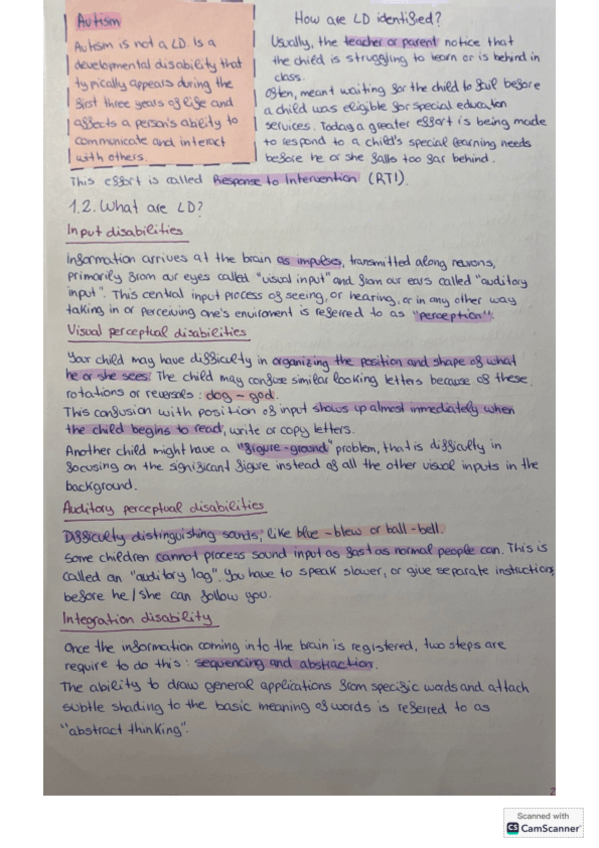 Autism
Autism is not a LD. Is a
developmental disability that
typically appears during the
first three years of life and
affects a person's ability to
communicate and interact
with others.
How are LD identified?
Usually, the teacher or parent notice that
the child is struggling to learn or is behind in
class.
Often, meant waiting for the child to fail before
a child was eligible for special education
services. Today a greater effort is being made
to respond to a child's special learning needs
before he or she falls too far behind.
This effort is called Response to Intervention (RTI).
1.2. What are LD?
Input disabilities
Information arrives at the brain as impulses, transmitted along neurons,
primarily from our eyes called "visual input" and from our ears called "auditory
input". This central input process of seeing, or hearing, or in any other way
taking in or perceiving one's enviroment is referred to as "perception".
Visual perceptual disabilities
Your child may have difficulty in organizing the position and shape of what
he or she sees. The child may confuse similar looking letters because of these
rotations or reversals: dog ~ god.
This confusion with position of input shows up almost immediately when
the child begins to read, write or copy letters.
Another child might have a "figure-ground" problem, that is difficulty in
focusing on the significant figure instead of all the other visual inputs in the
background.
Auditory perceptual disabilities
Difficulty distinguishing sounds, like blue - blew or ball - bell.
Some children cannot process sound input as fast as normal people can. This is
called an "auditory lag". You have to speak slower, or give separate instructions
before he/she can follow you.
Integration disability
Once the information coming into the brain is registered, two steps are
require to do this: sequencing and abstraction.
The ability to draw general applications from specific words and attach
subtle shading to the basic meaning of words is referred to as
"abstract thinking".
2
Scanned with
CS CamScanner